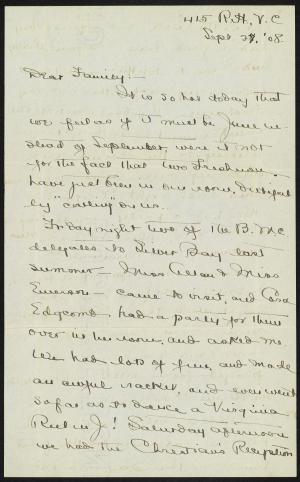 415 R.H., V.C
Sept 27, '08.
Dear Family:-
It is so hot today that
we feel as if it must be June in-
stead of September, were it not
for the fact that two Freshmen
have just been in our room, dutifully
"calling" on us.
Friday night two of the B. Mc
delegates to Silver Bay last
summer - Miss Allen & Miss
Emerson - came to visit, and Cora
Edgcomb had a party for them
over in her room, and asked me
We had lots of fun, and made
an awful racket, and even went
so far as to dance a Virginia
Reel in J! Saturday afternoon
we had the Christian's Reception